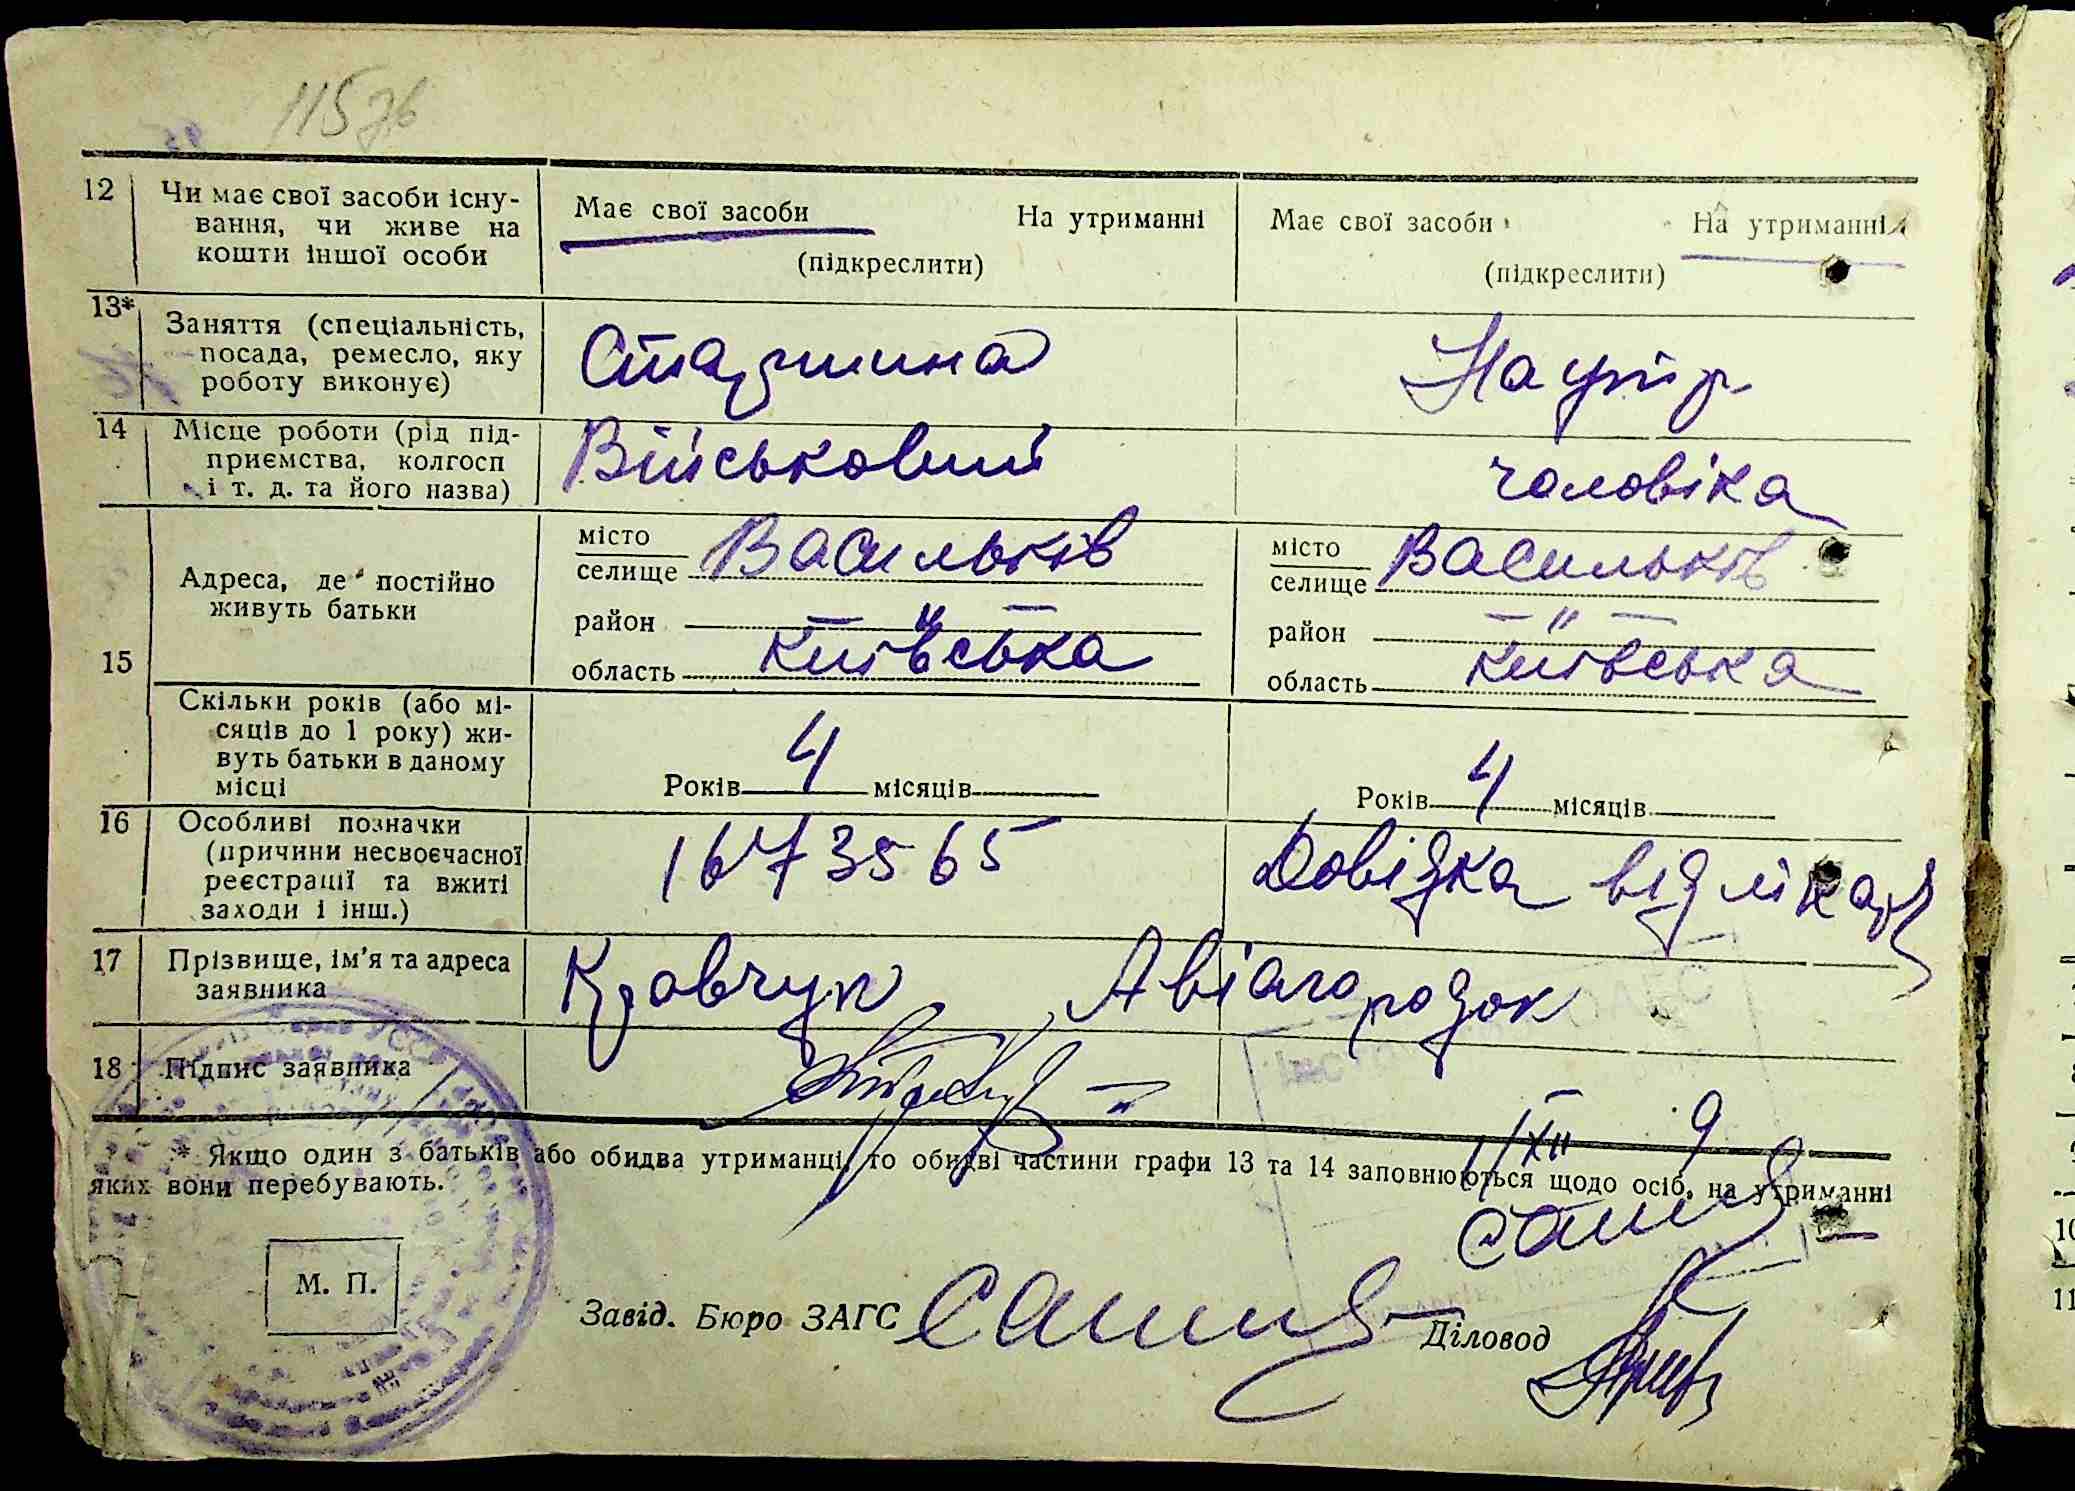 115 зв
12 Чи має свої засоби існу-
вання, чи живе на
кошти іншої особи
Має свої засоби На утриманні
(підкреслити)
Має свої засоби На утриманні
(підкреслити)
13* Заняття (спеціальність,
посада, ремесло, яку
роботу виконує)
Старшина
На утр.
14 Місце роботи (рід під-
приємства, колгосп
і т. д. та його назва)
Військовий
чоловіка
15 Адреса, де постійно
живуть батьки
місто
селище Васильків
район —"—
область Київська
місто
селище Васильків
район —"—
область Київська
Скільки років (або мі-
сяців до 1 року) жи-
вуть батьки в даному
місці
Років 4 місяців
Років 4 місяців
16 Особливі позначки
(причини несвоєчасної
реєстрації та вжиті
заходи і інш.)
1673565
Довідка від лікаря
17 Прізвище, ім'я та адреса
заявника
Кравчук Авіагородок
18 Підпис заявника
* Якщо один з батьків або обидва утриманці, то обидві частини графи 13 та 14 заповнюються щодо осіб, на утриманні
яких вони перебувають.
М. П.
Завід. Бюро ЗАГС
Діловод